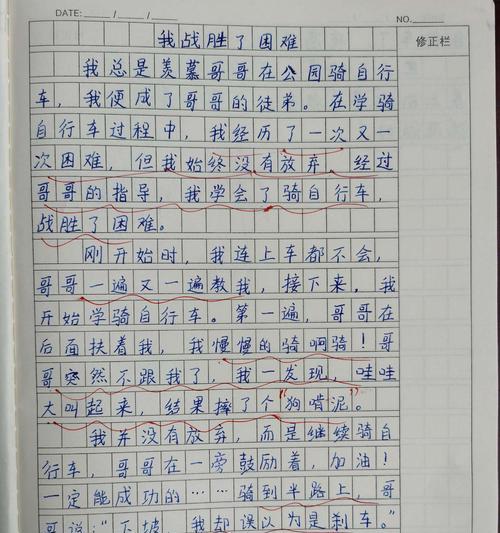 DATE: / /
NO.
我战胜了困难
修正栏
我总是羡慕哥哥在公园骑自行
车，我便成了哥哥的徒弟。在学骑
自行车过程中，我经历了一次又一
次困难，但我始终没有放弃，经过
哥哥的指导，我学会了骑自行车，
战胜了困难。
刚开始时，我连上车都不会，
哥哥一遍又一遍教我，接下来，我
开始学骑自行车。第一遍，哥哥在
后面扶着我，我慢慢的骑啊骑！哥
哥突然不跟我了，我一发现，哇哇
大叫起来，结果摔了个“狗啃泥”。
我并没有放弃，而是继续骑自
行车，哥哥在一旁鼓励着，加油！
一定能成功的……骑到半路上，哥
哥说：“下坡，我却误以为是刹车。”